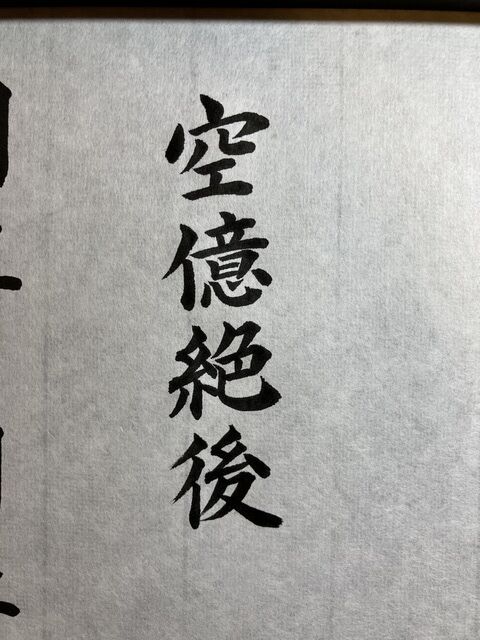 空億絶後